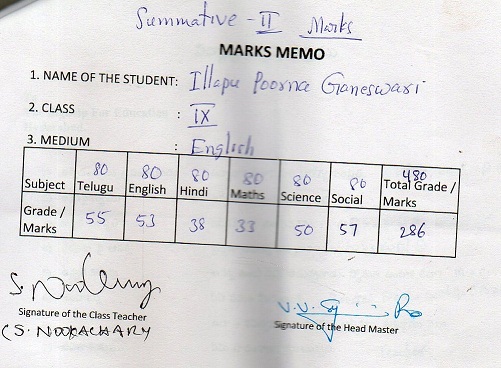 Summative - II Marks
MARKS MEMO
1. NAME OF THE STUDENT: Illapu Poorna Ganeswari
2. CLASS : IX
3. MEDIUM : English
80 80 80 80 80 80 480
Subject Telugu English Hindi Maths Science Social Total Grade / Marks
Grade / Marks 55 53 38 33 50 57 286
Signature of the Class Teacher
(S. NOOKACHARY
Signature of the Head Master